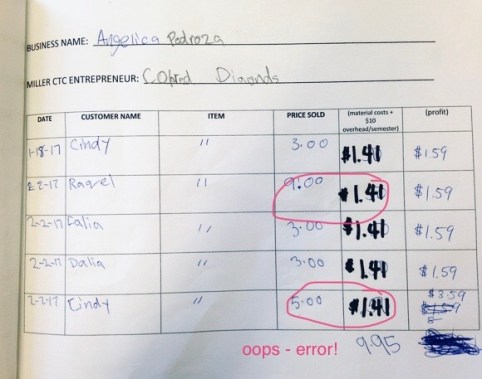 BUSINESS NAME: Angelica Pedroza
MILLER CTC ENTREPRENEUR: Diaonds
DATE CUSTOMER NAME ITEM PRICE SOLD (material costs + $10 overhead/semester) (profit)
1-18-17 Cindy " 3.00 $1.41 $1.59
2-2-17 Raquel " 9.00 $1.41 $1.59
2-2-17 Falia " 3.00 $1.41 $1.59
2-2-17 Dalia " 3.00 $1.41 $1.59
2-2-17 Cindy " 5.00 $1.41 $3.59
oops - error! 9.95